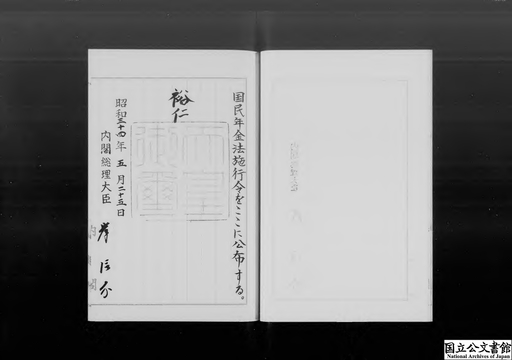 国民年金法施行令をここに公布する。
裕仁
天皇御璽
昭和三十四年五月二十五日
内閣総理大臣
岸信介
国立公文書館
National Archives of Japan